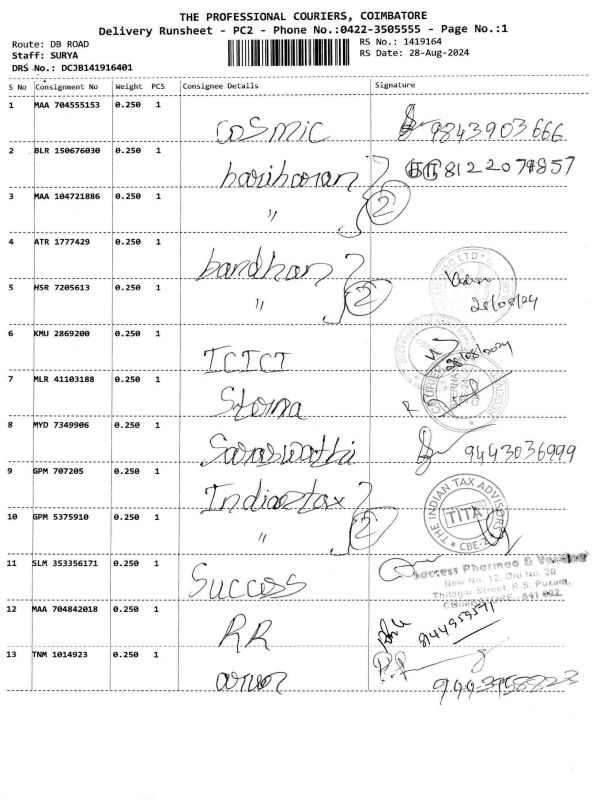 THE PROFESSIONAL COURIERS, COIMBATORE
Delivery Runsheet - PC2 - Phone No.:0422-3505555 - Page No.:1
Route: DB ROAD
RS No.: 1419164
Staff: SURYA
RS Date: 28-Aug-2024
DRS No.: DCJB141916401
S No Consignment No Weight PCS Consignee Details Signature
1 MAA 704555153 0.250 1
COSMIC 9843903666
2 BLR 150676030 0.250 1
hariharan 8122074857
3 MAA 104721886 0.250 1
" 2
4 ATR 1777429 0.250 1
bandhan
5 HSR 7205613 0.250 1
" 2 28/08/24
6 KMU 2869200 0.250 1
ICICI 28/08/2024
7 MLR 41103188 0.250 1
8 MYD 7349906 0.250 1
Saraswathi 9443036999
9 GPM 707205 0.250 1
Indiantax
10 GPM 5375910 0.250 1
" 2
THE INDIAN TAX ADVISORS
TITA
CBE-2
11 SLM 353356171 0.250 1
Success
Success Pharmaa &
New No: 12, Old No. 20
Thilagar Street, R.S. Puram,
COIMBATORE - 641 002
12 MAA 704842018 0.250 1
RR 8144959591
13 TNM 1014923 0.250 1